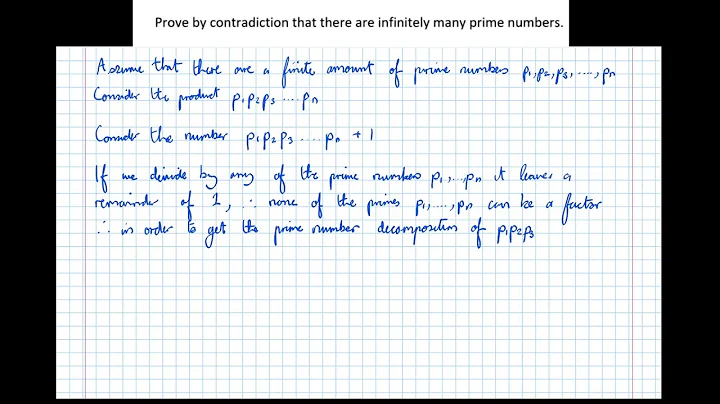 Prove by contradiction that there are infinitely many prime numbers.
Assume that there are a finite amount of prime numbers p₁,p₂,p₃,....,pₙ
Consider the product p₁p₂p₃....pₙ
Consider the number p₁p₂p₃....pₙ + 1
If we divide by any of the prime numbers p₁,...,pₙ it leaves a
remainder of 1, ∴ none of the primes p₁,....,pₙ can be a factor
∴ in order to get the prime number decomposition of p₁p₂p₃